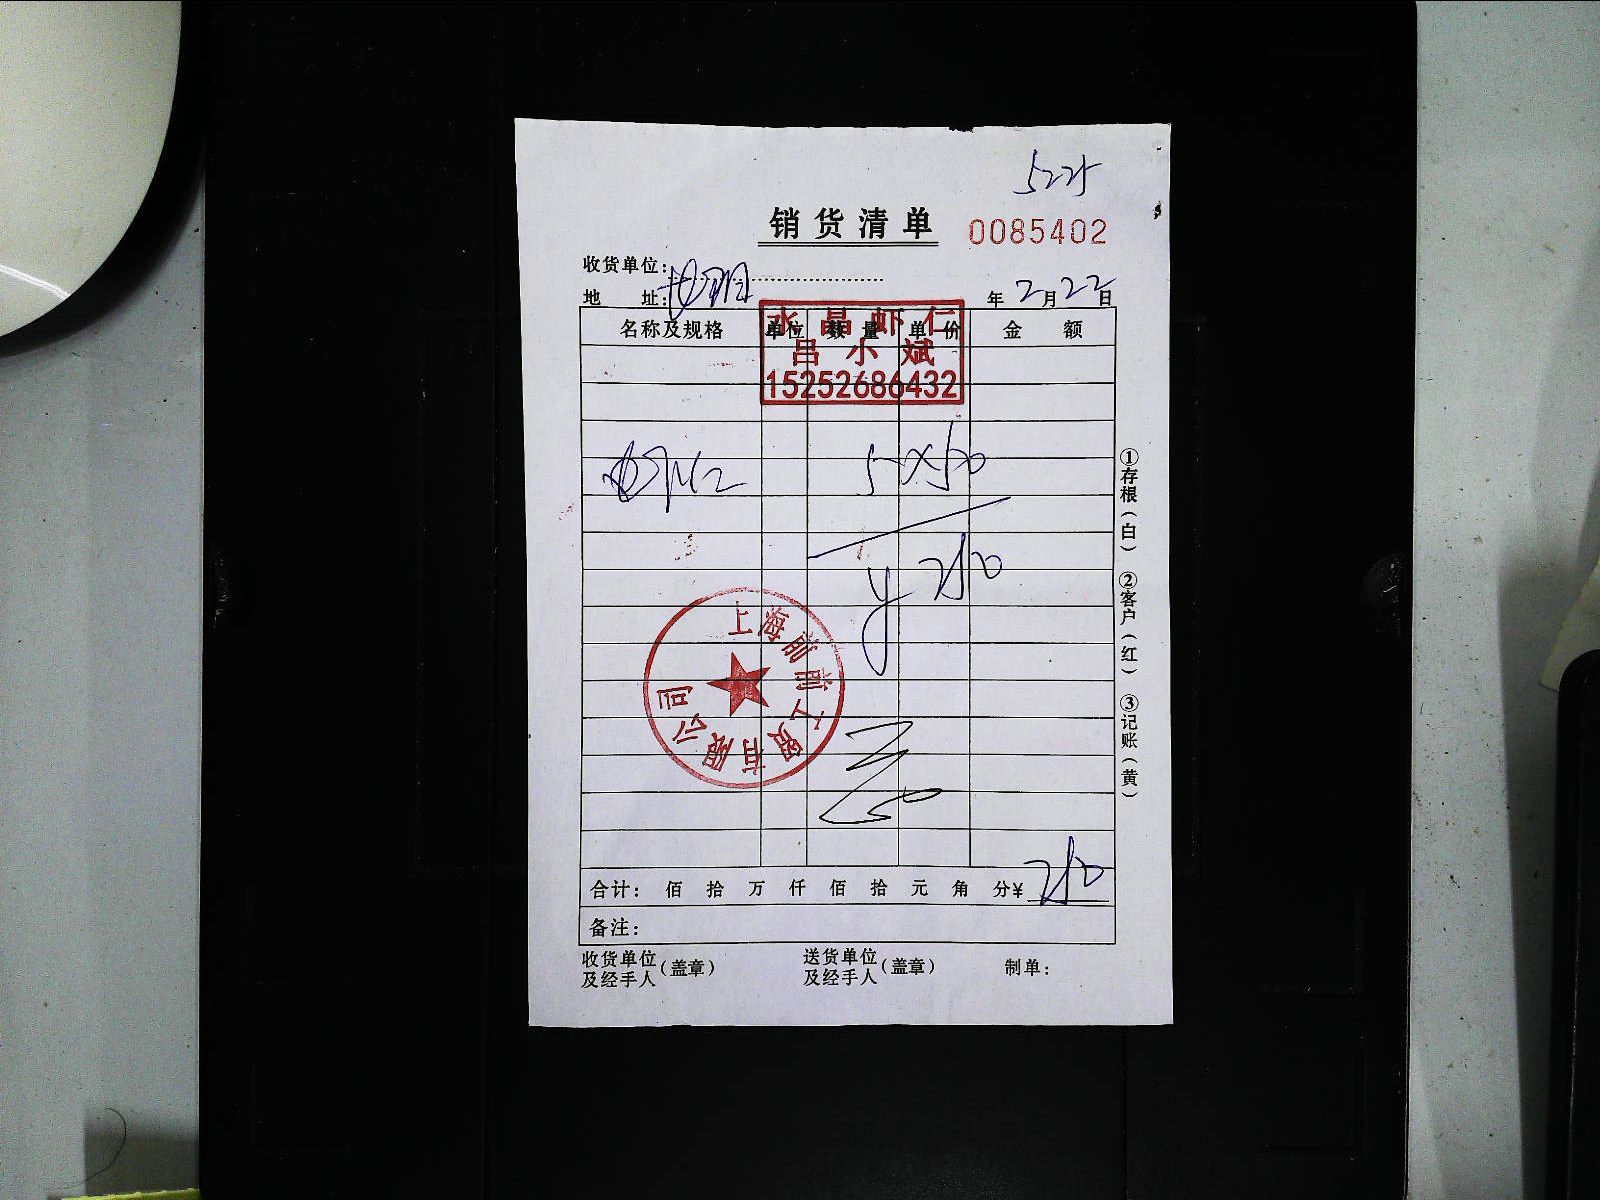 5225
销货清单 0085402
收货单位：
地 址： 年 2月22日
名称及规格 单位 数量 单价 金 额
水晶虾仁
吕小斌
15252686432
5×50
¥250
上海前前工贸有限公司
合计： 佰 拾 万 仟 佰 拾 元 角 分¥ 250
备注：
收货单位及经手人（盖章） 送货单位及经手人（盖章） 制单：
①存根（白） ②客户（红） ③记账（黄）